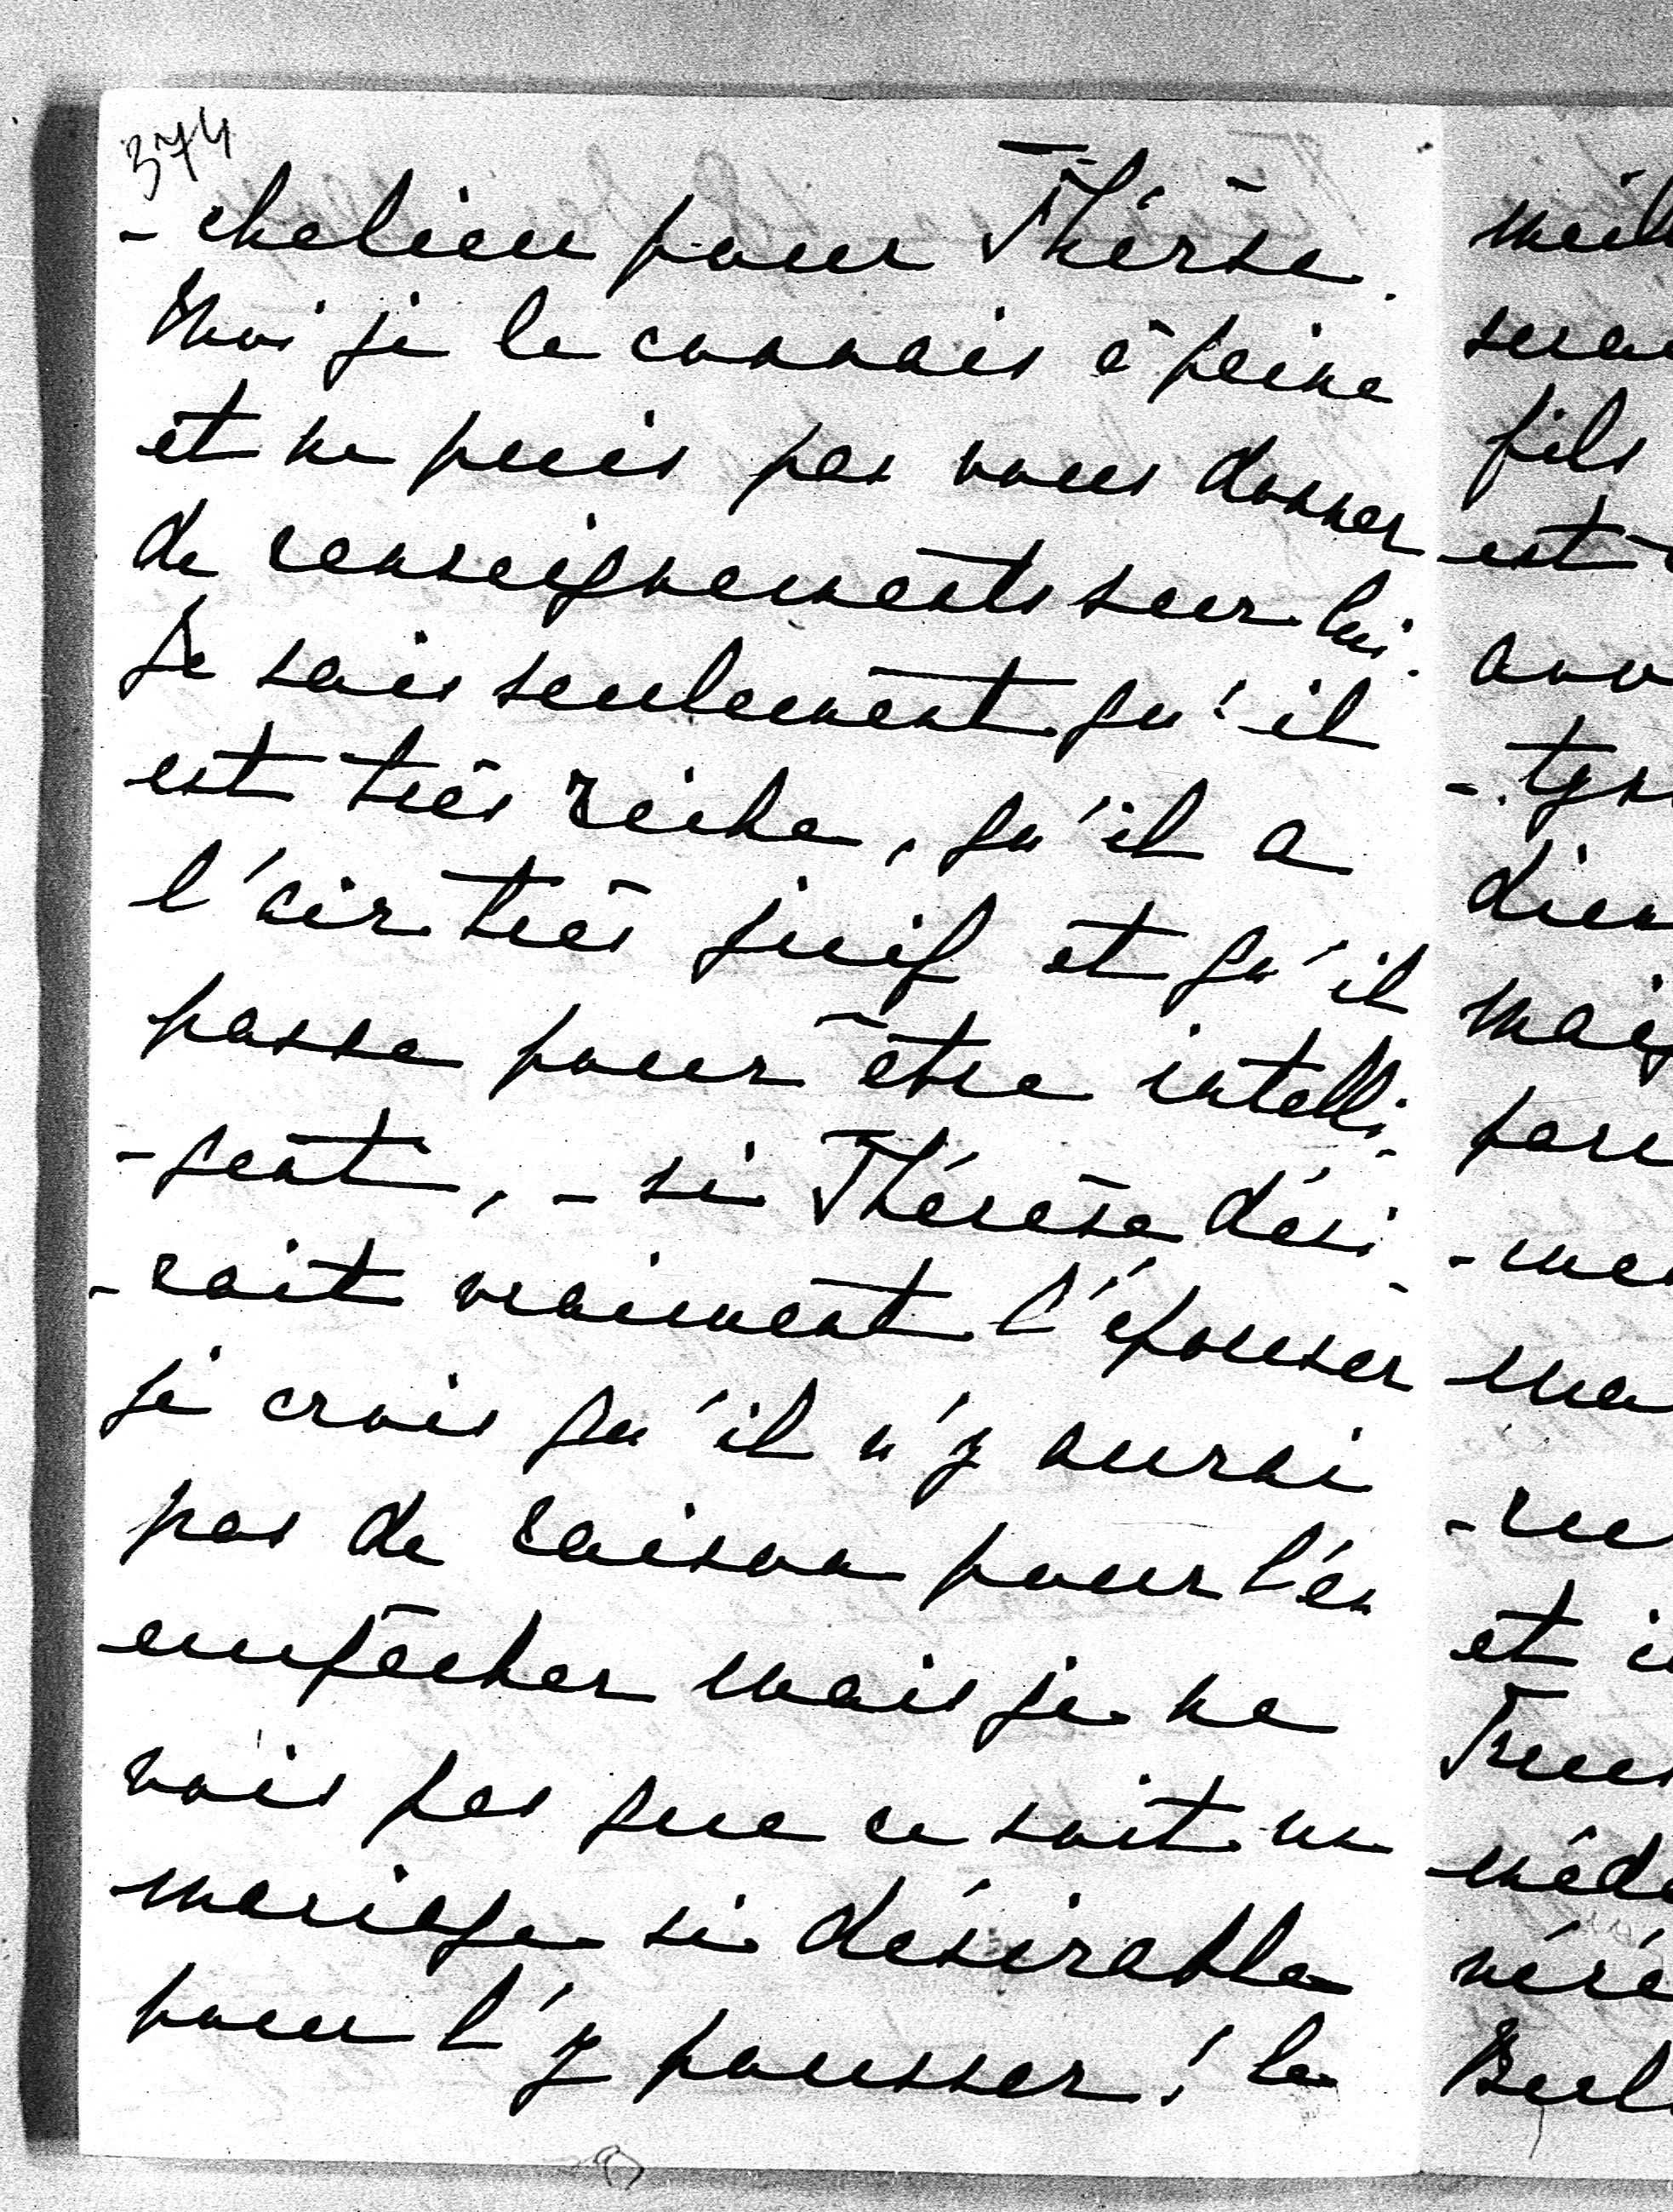 374
-chelieu pour Thérèse.
Moi je le connais à peine
et ne puis pas vous donner
de renseignements sur lui.
Je sais seulement qu'il
est très riche, qu'il a
l'air très juif et qu'il
passe pour être intelli-
-gent, - si Thérèse dési-
-rait vraiment l'épouser
je crois qu'il n'y aurai
pas de raison pour l'en
empêcher mais je ne
vois pas que ce soit un
mariage si désirable
pour l'y pousser! le
meil
serai
fils
est
avo
-tyn
dien
mais
pare
-me
ma
-re
et
Trues
méde
néré
Berl